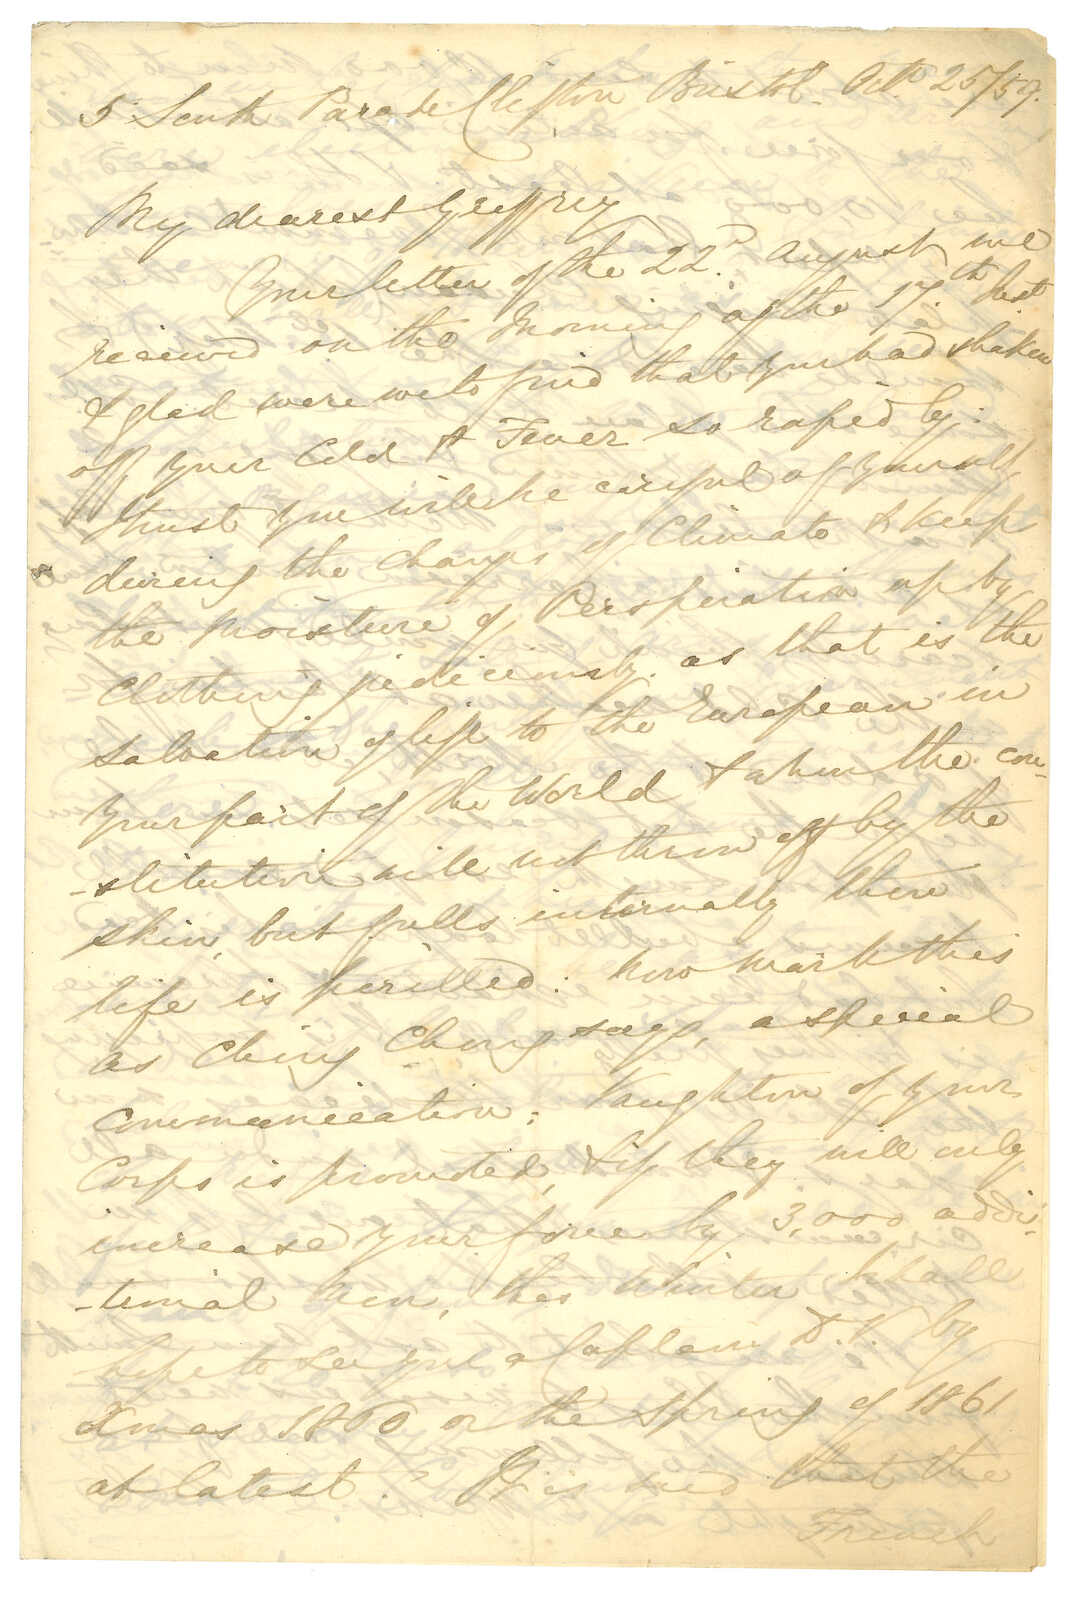 5 South Parade Clifton Bristol. Octr 25/59.
My dearest Geoffrey
Your letter of the 22d. August we
received on the Morning of the 17th. Inst
& glad were we to find that you had shaken
off your Cold & Fever so rapidly.
I trust you will be careful of yourself,
during the change of Climate & keep
the moisture of Perspiration up by
Clothing judiciously. as that is the
salvation of life to the European in
your part of the World & when the con-
-stitution will not throw off by the
skin, but falls internally then
life is perilled: Now mark this
as Ching Chong says, a special
communication; Naughton of your
Corps is promoted, & if they will only
increase your force by 3,000 addi-
-tional men, this Winter I shall
hope to see you a Captain D.V. by
Xmas 1860 or the Spring of 1861
at latest. It is said that the
French